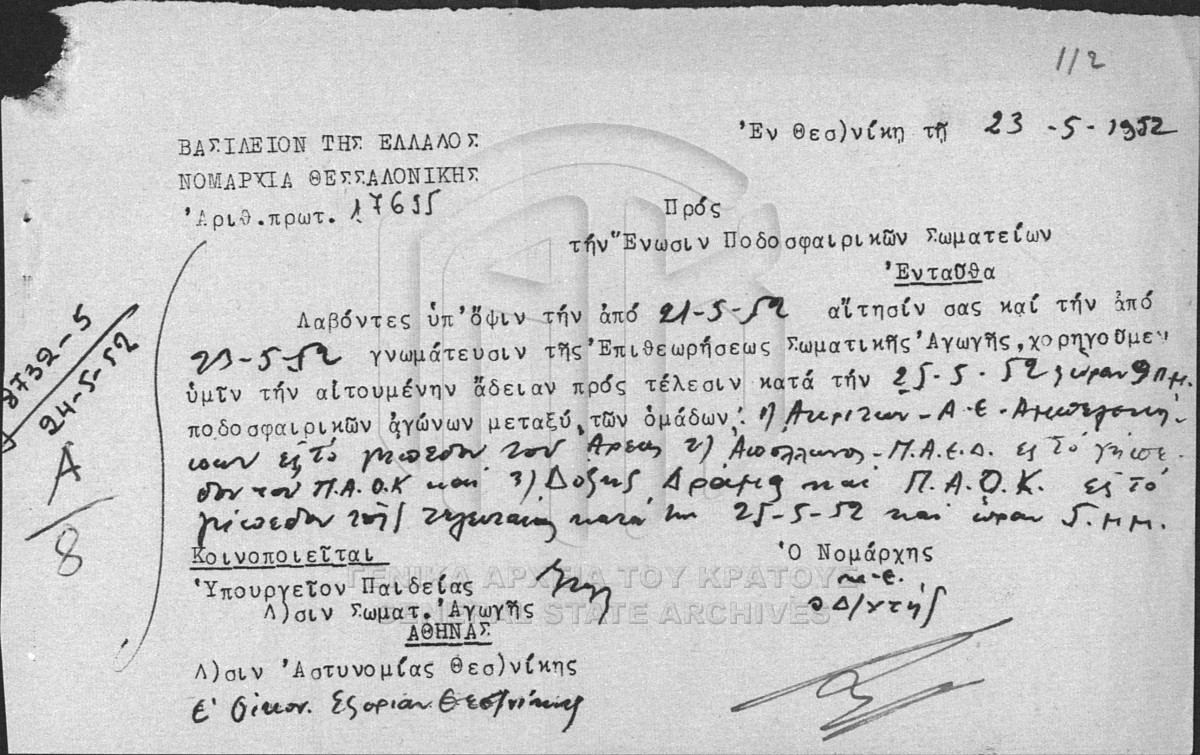 112
Ἐν Θεσ)νίκη τῇ 23-5-1952
ΒΑΣΙΛΕΙΟΝ ΤΗΣ ΕΛΛΑΔΟΣ
ΝΟΜΑΡΧΙΑ ΘΕΣΣΑΛΟΝΙΚΗΣ
Ἀριθ.πρωτ. 17655
Πρός
τήν Ἕνωσιν Ποδοσφαιρικῶν Σωματείων
Ἐνταῦθα
Λαβόντες ὑπ'ὄψιν τήν ἀπό 21-5-52 αἴτησίν σας καί τήν ἀπό
23-5-52 γνωμάτευσιν τῆς Ἐπιθεωρήσεως Σωματικῆς Ἀγωγῆς, χορηγοῦμεν
ὑμῖν τήν αἰτουμένην ἄδειαν πρός τέλεσιν κατά τήν 25-5-52 & ὥραν 9 π.μ.
ποδοσφαιρικῶν ἀγώνων μεταξύ τῶν ὁμάδων: 1) Ακριτων - Α.Ε. Αμπελοκή-
πων εις το γήπεδον του Αρεως 2) Απολλωνος - Π.Α.Ε.Δ. εις το γήπε-
δον του Π.Α.Ο.Κ και 3) Δοξης Δράμας και Π.Α.Ο.Κ. εις το
γήπεδον του τελευταιου κατά την 25-5-52 και ώραν 5 μ.μ.
8732-5
24-5-52
Α
8
Κοινοποιεῖται
Ὑπουργεῖον Παιδείας
Δ)σιν Σωματ. Ἀγωγῆς
ΑΘΗΝΑΣ
Δ)σιν Ἀστυνομίας Θεσ)νίκης
Ε' Οικον. Εφοριαν Θεσ)νίκης
Ὁ Νομάρχης
μ.ε.
ο Δ/ντής
ΓΕΝΙΚΑ ΑΡΧΕΙΑ ΤΟΥ ΚΡΑΤΟΥΣ
GENERAL STATE ARCHIVES